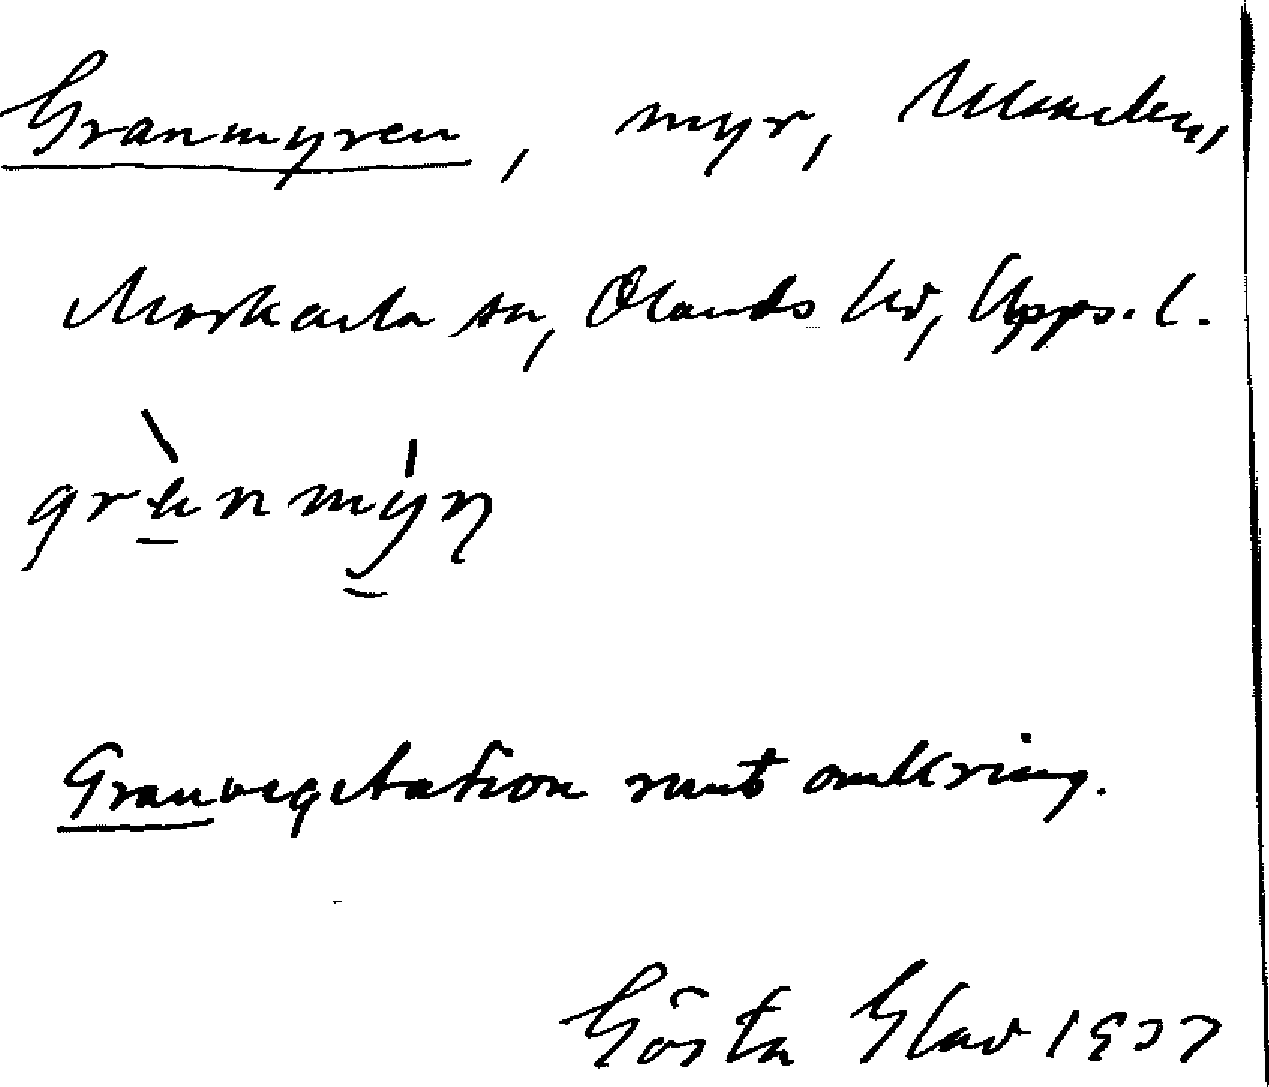 Granmyren, myr,
Morkarla sn, Olands hd, Upps. l.
Granvegetation runt omkring.
Gösta Glav 1937